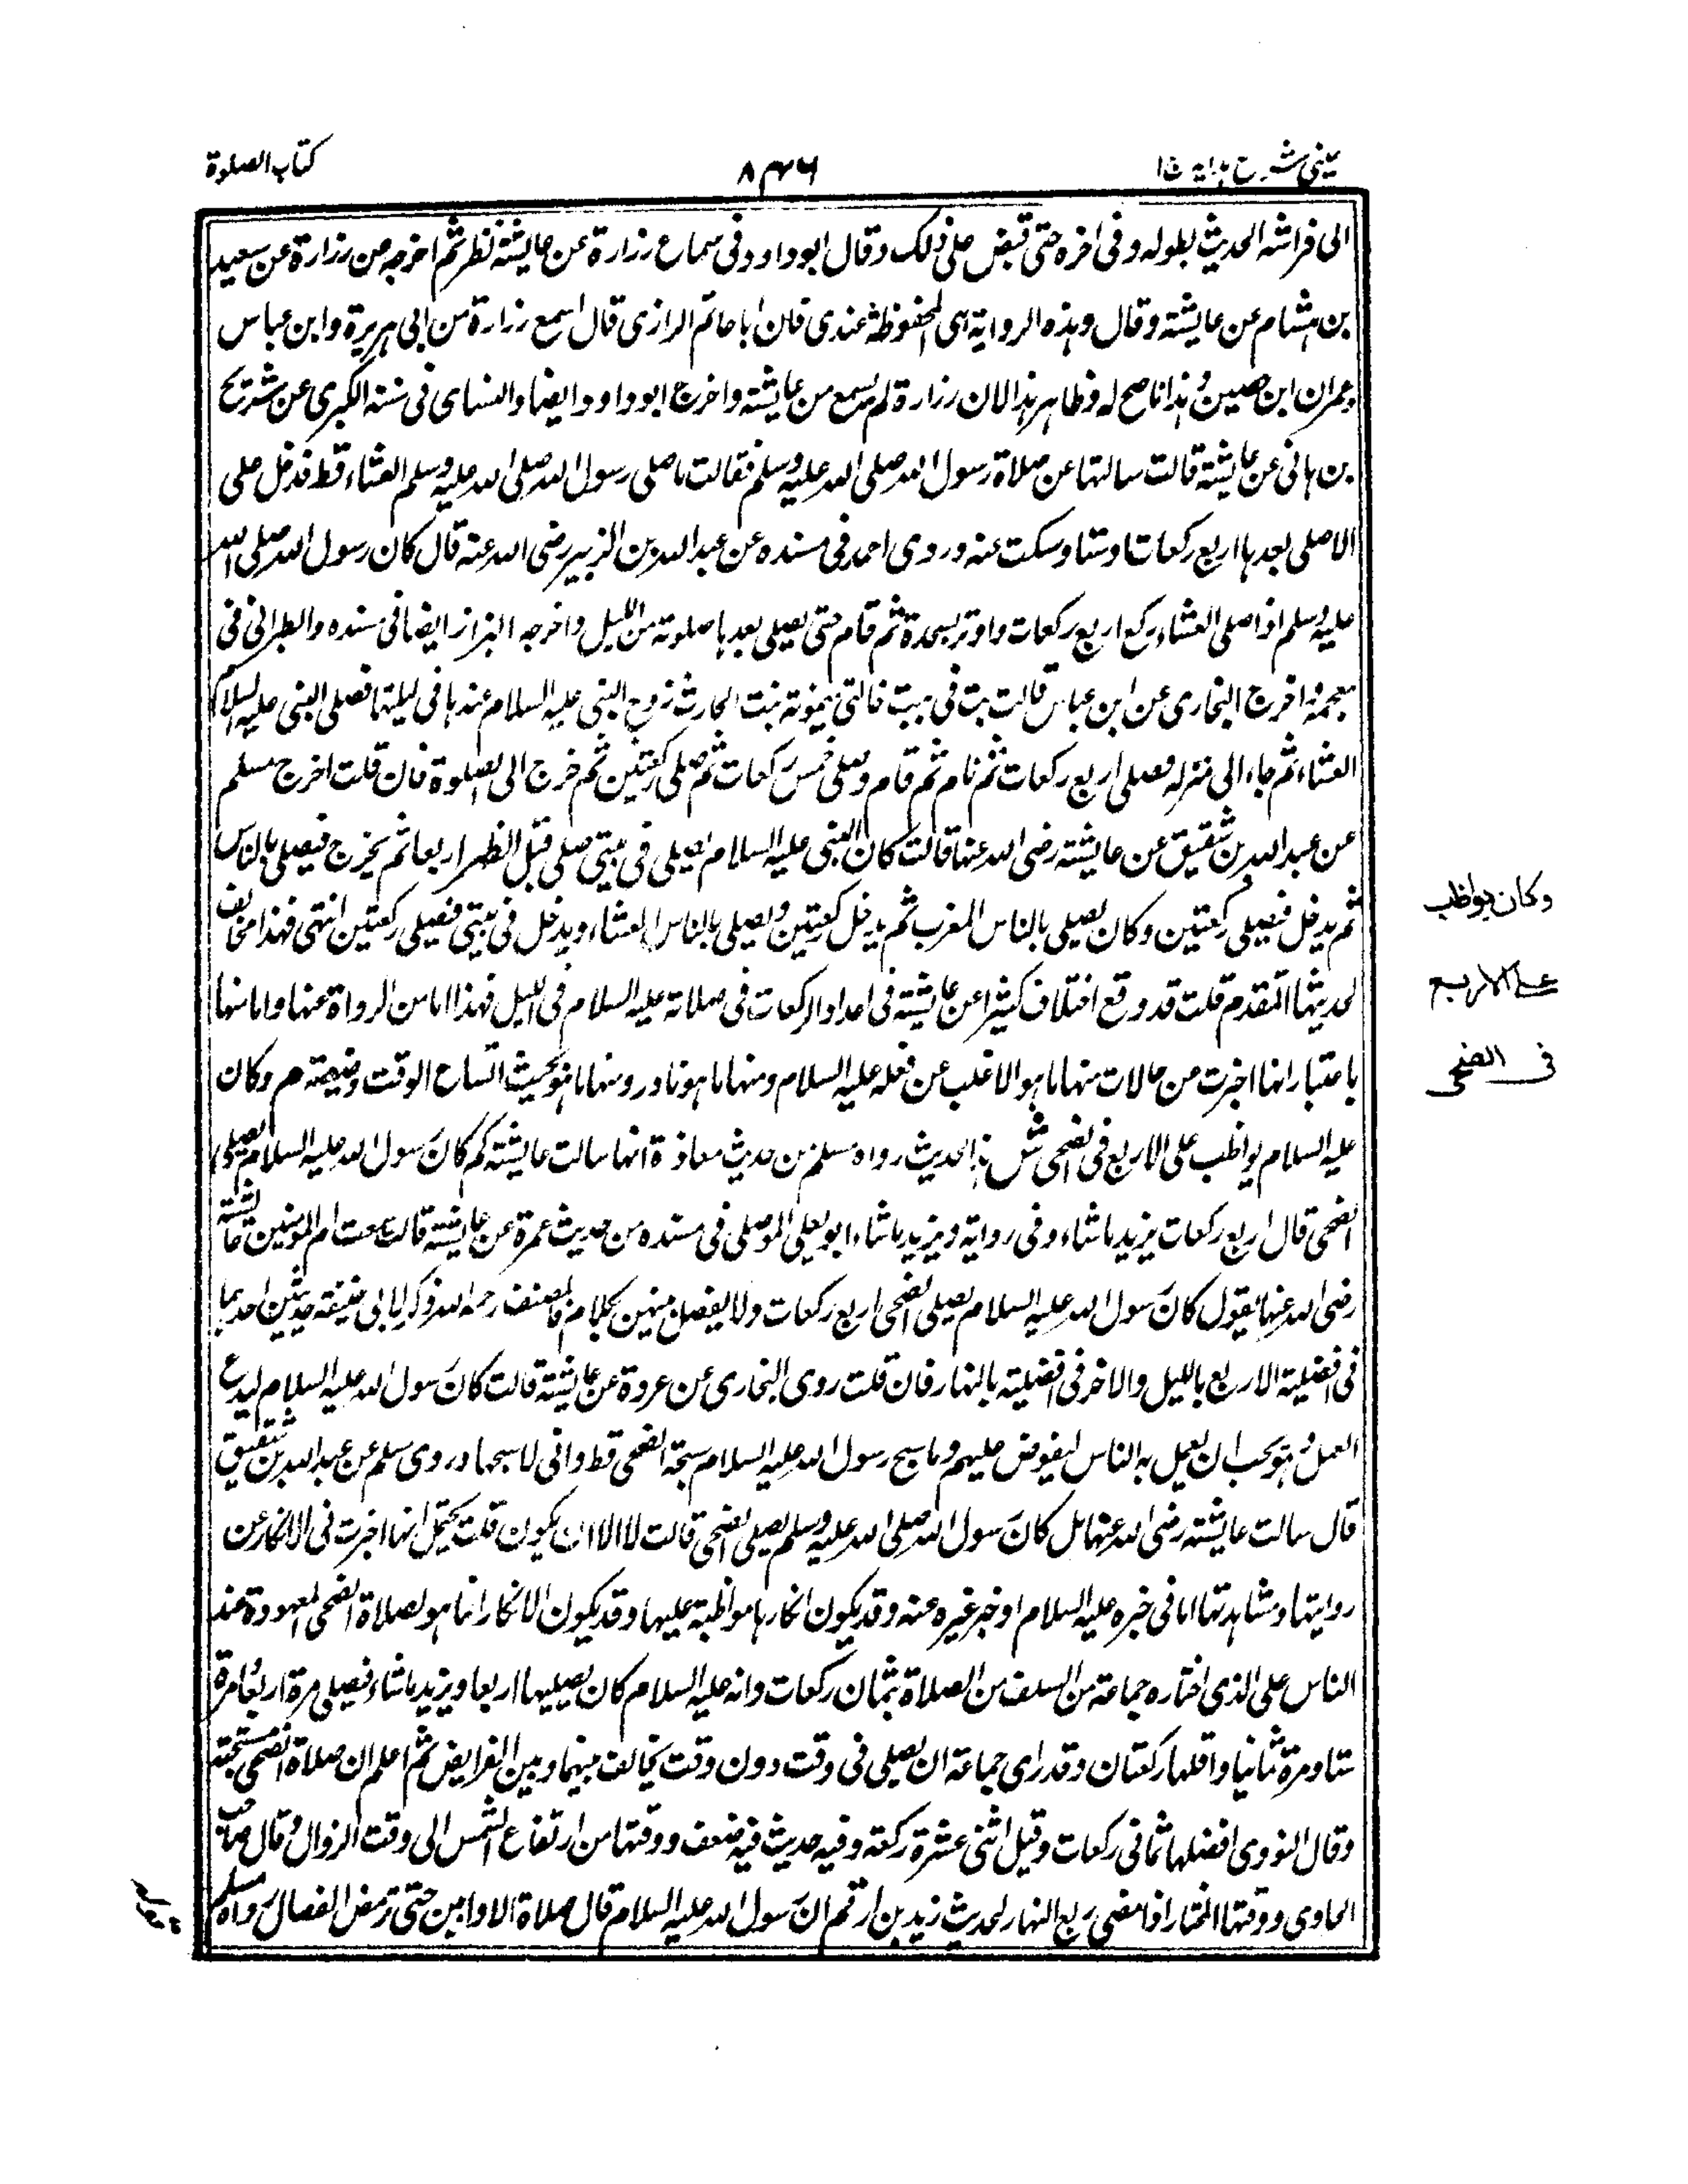 عینی شرح ہدایہ ج ۱
۸۴۶
کتاب الصلوة
الی فراشه الحدیث بطوله وفی اخره حتی قبض علی ذلک وقال ابوداود فی سماع زرارة عن عایشة نظر ثم اخرجه من زرارة عن سعید
بن ہشام عن عایشة وقال وہذه الروایة ہی المحفوظة عندی فان اباحاتم الرازی قال اسمع زرارة من ابی ہریرة وابن عباس
وعمران ابن حصین وہذا ما صح له وظاہر ہذا الان زرارة لم یسمع من عایشة واخرج ابوداود ایضا والنسای فی سننه الکبری عن شریح
بن ہانی عن عایشة قالت سالتہا عن صلاة رسول الله صلی الله علیه وسلم فقالت ما صلی رسول الله صلی الله علیه وسلم العشاء قط فدخل علی
الاصلی بعدہا اربع رکعات اوستا وسکت عنه وروی احمد فی مسنده عن عبدالله بن الزبیر رضی الله عنه قال کان رسول الله صلی الله
علیه وسلم اذا صلی العشاء رکع اربع رکعات واوتر بسجدة ثم قام حتی یصلی بعدہا صلوته من اللیل واخرجه البزار ایضا فی مسنده والطبرانی فی
معجمه واخرج البخاری عن ابن عباس قالت بت فی بیت خالتی میمونة بنت الحارث زوج النبی علیه السلام عندہا فی لیلتہا فصلی النبی علیه السلام
العشاء ثم جاء الی منزله فصلی اربع رکعات ثم نام ثم قام وصلی خمس رکعات ثم صلی رکعتین ثم خرج الی الصلوة فان قلت اخرج مسلم
عن عبدالله بن شقیق عن عایشة رضی الله عنہا قالت کان النبی علیه السلام یصلی فی بیتی صلی قبل الظہر اربعا ثم یخرج فیصلی بالناس
ثم یدخل فیصلی رکعتین وکان یصلی بالناس المغرب ثم یدخل رکعتین ویصلی بالناس العشاء ویدخل فی بیتی فیصلی رکعتین انتہی فہذا مخالف
لحدیثہا المتقدم قلت قد وقع اختلاف کثیرا عن عایشة فی اعداد الرکعات فی صلاته علیه السلام فی اللیل فہذا اما من الرواة عنہا واما منہا
باعتبار انہا اخبرت من حالات منہا ما ہو الاغلب عن فعله علیه السلام ومنہا ما ہو نادر ومنہا ما ہو بحیث اتساع الوقت وضیقه م وکان
علیه السلام یواظب علی الاربع فی الضحی ش ہذا الحدیث رواه مسلم من حدیث معاذة انہا سالت عایشة کم کان رسول الله علیه السلام یصلی
الضحی قال اربع رکعات یزید ما شاء وفی روایة ویزید ما شاء ابو یعلی الموصلی فی مسنده من حدیث عمرة عن عایشة قالت سمعت ام المومنین عایشة
رضی الله عنہا یقول کان رسول الله علیه السلام یصلی الضحی اربع رکعات ولا یفصل بینہن بکلام فالمصنف رحمه الله ذکر لابی حنیفة حدیثین احدہما
فی افضلیة الاربع باللیل والاخر فی افضلیته بالنہار فان قلت روی البخاری عن عروة عن عایشة قالت کان رسول الله علیه السلام لیدع
العمل وہو یحب ان یعمل به الناس لیفوض علیہم وما سبح رسول الله علیه السلام سبحة الضحی قط وانی لاسبحہا وروی مسلم عن عبدالله بن شقیق
قال سالت عایشة رضی الله عنہا ہل کان رسول الله صلی الله علیه وسلم یصلی الضحی قالت لا الا ان یکون قلت یحتمل انہا اخبرت فی الانکار عن
روایتہا ومشاہدتہا اما فی خبره علیه السلام او خبر غیره عنه وقد یکون انکارہا مواظبة علیہا وقد یکون الانکار انما ہو لصلاة الضحی المعہودة عند
الناس علی الذی اختاره جماعة من السلف من الصلاة بثمان رکعات وانه علیه السلام کان یصلیہا اربعا ویزید ما شاء فیصلی مرة اربعا ومرة
ستا ومرة ثمانیا واقلہا رکعتان وقد رای جماعة ان یصلی فی وقت دون وقت یخالف بینہما وبین الفرایض ثم اعلم ان صلاة الضحی مستحبة
وقال النووی افضلہا ثمانی رکعات وقیل اثنی عشرة رکعة وفیه حدیث فیه ضعف ووقتہا من ارتفاع الشمس الی وقت الزوال وقال صاحب
الحاوی ووقتہا المختار اذا مضی ربع النہار لحدیث زید بن ارقم ان رسول الله علیه السلام قال صلاة الاوابین حتی ترمض الفصال رواه مسلم
وکان یواظب
علی الاربع
فی الضحی